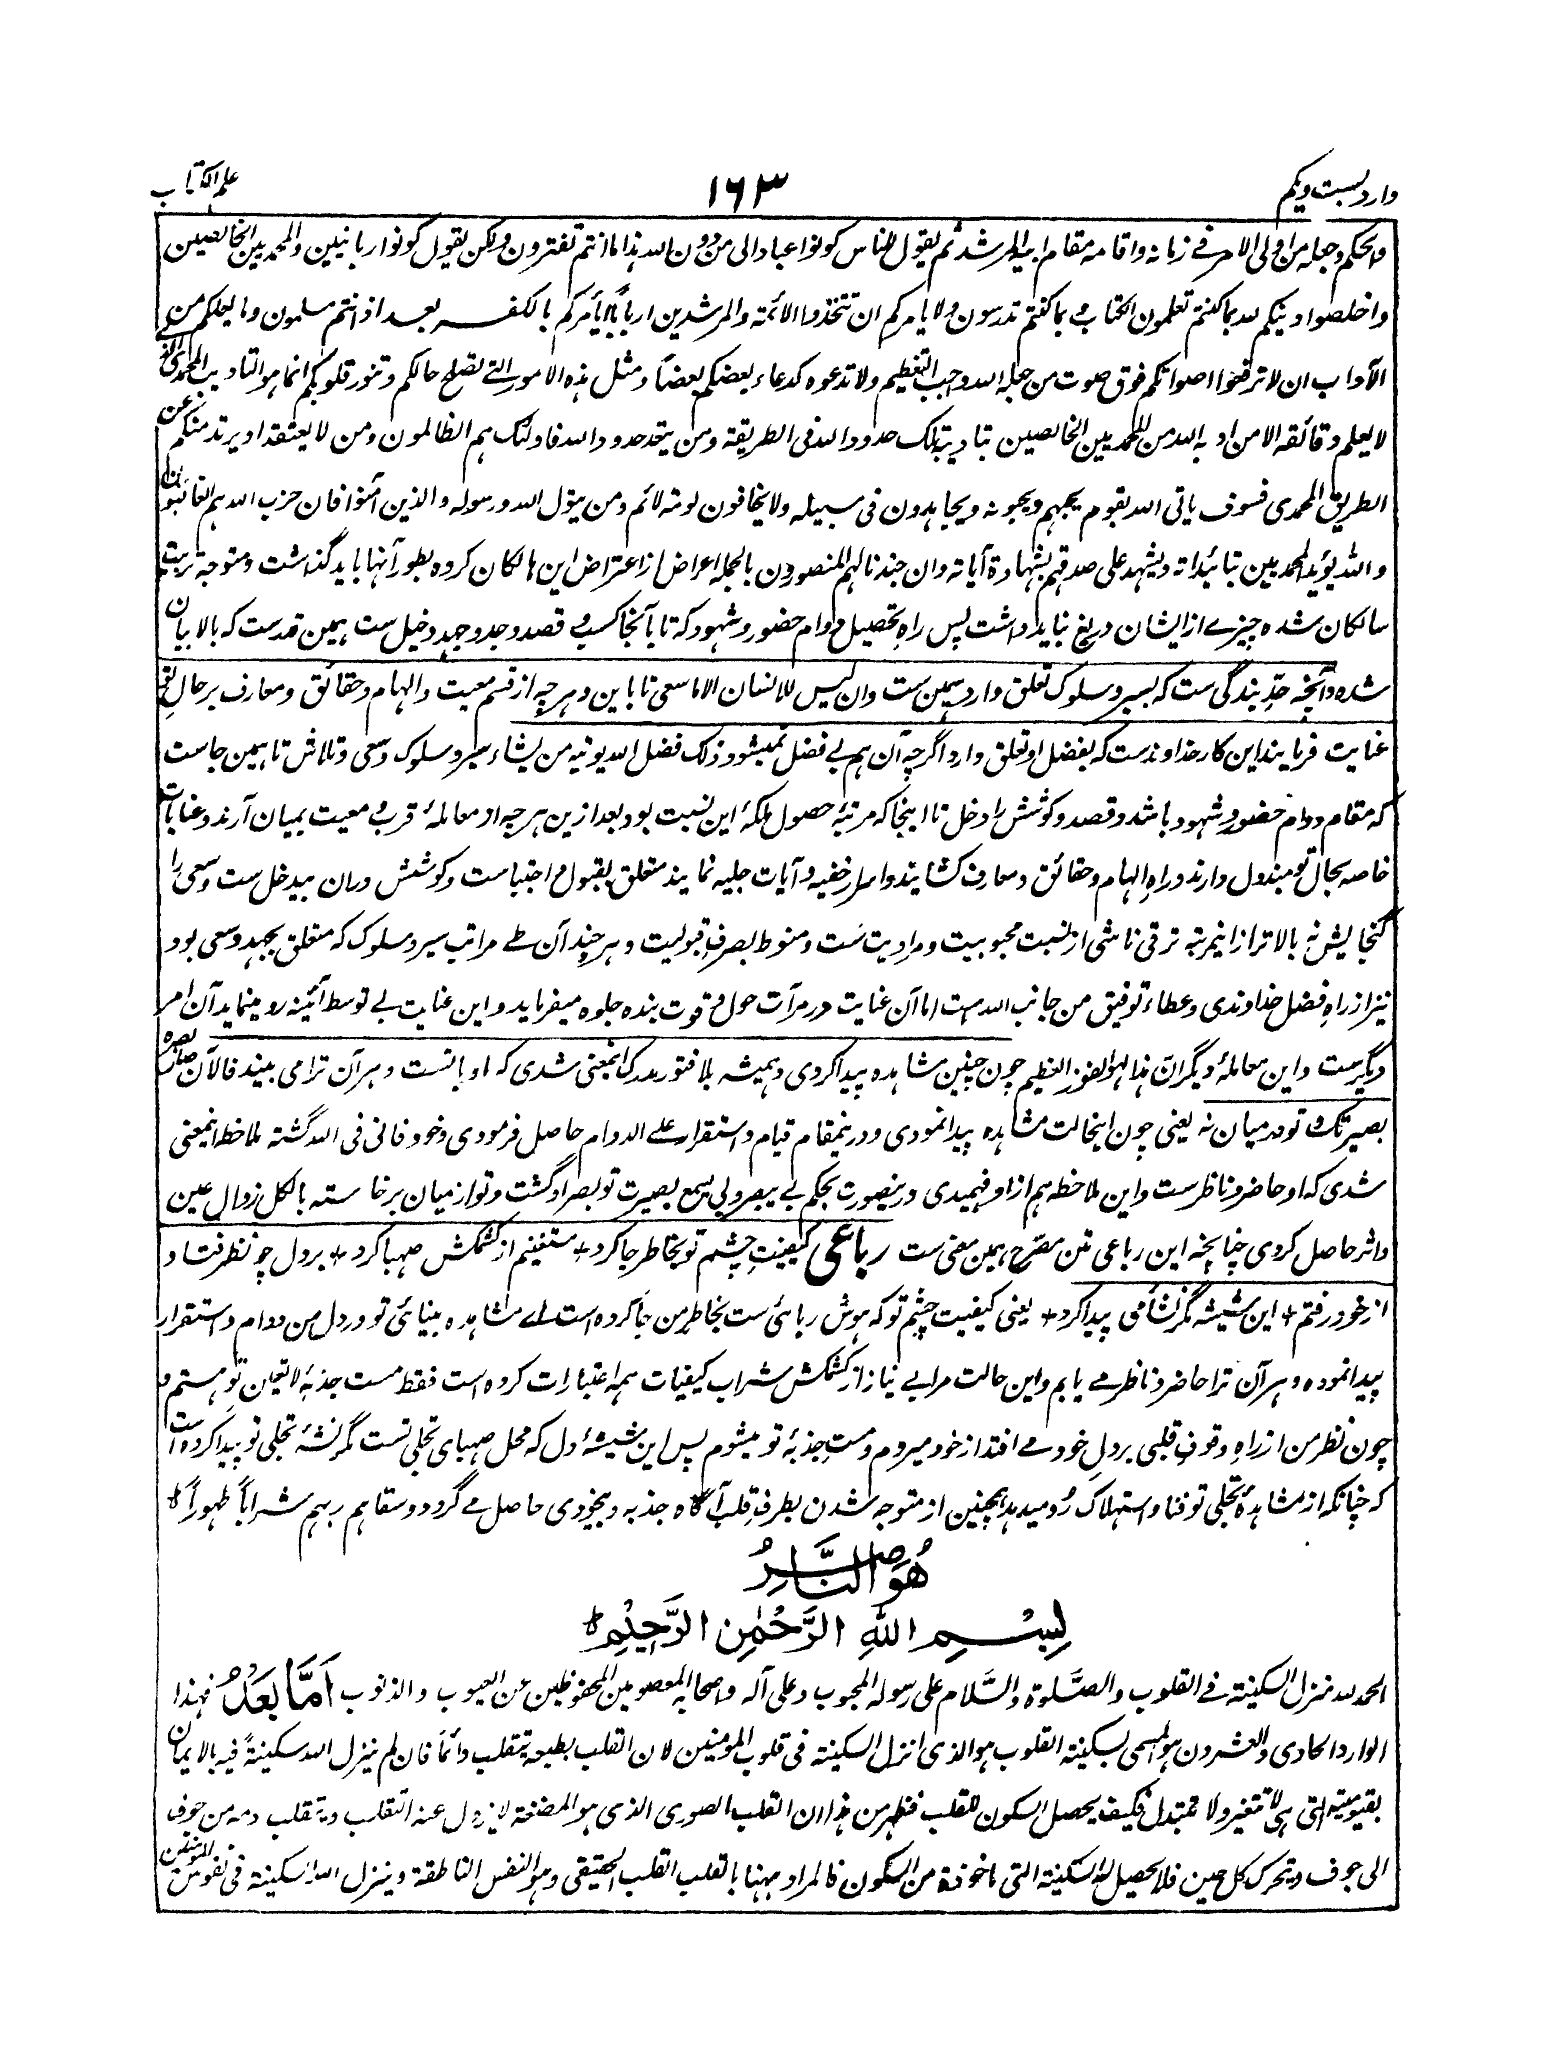 وارد بست و یکم ۱۶۳ علم الکتاب
والحکم وجعله من اولی الامر فی زمانه واقامه مقام ابیه المرشد ثم یقول للناس کونوا عبادا لی من دون الله هذا ما انتم تفترون ولکن یقول کونوا ربانیین والمحمدیین الخالصین
واخلصوا دینکم لله بما کنتم تعلمون الکتاب وبما کنتم تدرسون ولا یامرکم ان تتخذوا الائمة والمرشدین اربابا ایأمرکم بالکفر بعد اذ انتم مسلمون وما یعلمکم من
الآداب ان لا ترفعوا اصواتکم فوق صوت من جعله الله واجب التعظیم ولا تدعوه کدعاء بعضکم بعضاً ومثل هذه الامور التی تصلح حالکم وتنور قلوبکم انما هو التادیب المحمدی الذی
لا یعلم دقائقه الا من ادبه الله من المحمدیین الخالصین تبادیته تلک حدود الله فی الطریقة ومن یتعد حدود الله فاولئک هم الظالمون ومن لا یعتقد او یرتد منکم عن
الطریق المحمدی فسوف یاتی الله بقوم یحبهم ویحبونه ویجاهدون فی سبیله ولا یخافون لومة لائم ومن یتول الله ورسوله والذین آمنوا فان حزب الله هم الغالبون
والله یؤید المحمدیین بتائیداته ویشهد علی صدقهم بشهادة آیاته وان جندنا لهم المنصورون بالجمله اعراض از اعتراض این هالکان کرده بطور آنها باید گذاشت و متوجه تربیت
سالکان شده چیزے از ایشان دریغ نباید داشت پس راه تحصیل دوام حضور و شهود که تا بآنجا کسب و قصد و جد و جهد دخیل ست همین قدرست که بالا بیان
شده و آنچه حدِّ بندگی ست که بسیر و سلوک تعلق دارد همین ست وان لیس للانسان الا ما سعی تا باین و هر چه از قسم معیت و الهام و حقائق و معارف بر حالِ تو
عنایت فرمایند این کار خداوندست که بفضل او تعلق دارد اگرچه آن هم بے فضل نمیشود ذلک فضل الله یوتیه من یشاء سیر و سلوک و سعی و تلاش تا همین جاست
که مقام دوام حضور و شهود باشد و قصد و کوشش را دخل تا اینجا که مرتبۂ حصول ملکۂ این نسبت بود بعد ازین هر چه از معاملۂ قرب و معیت بمیان آرند و عنایات
خاصه بحال تو مبذول دارند و راه الهام و حقائق و معارف کشایند و اسرار خفیه و آیات جلیه نمایند متعلق بقبول و اجتباست و کوشش دران بیدخل ست و سعی را
گنجایش نه بالاتر ازانیمرتبه ترقی ناشی از نسبت محبوبیت و مرادیت ست و منوط بصرفِ قبولیت و هر چند آن طے مراتب سیر و سلوک که متعلق بجهد و سعی بود
نیز از راهِ فضل خداوندی و عطاء توفیق من جانب الله ست اما آن عنایت در مرآت حول و قوت بنده جلوه میفرماید و این عنایت بے توسط آئینه رو مینماید آن امر
دیگرست و این معاملۂ دیگر ان هذا لهو الفوز العظیم چون چنین مشاهده پیدا کردی و همیشه بلا فتور مدرک اینمعنی شدی که او با تست و هر آن ترا می بیند فالآن صار بصره
بصیرتک و تو درمیان نه یعنی چون اینحالت مشاهده پیدا نمودی و درینمقام قیام و استقرار علے الدوام حاصل فرمودی و خود فانی فی الله گشته ملاحظه اینمعنی
شدی که او حاضر و ناظرست و این ملاحظه هم از او فهمیدی درینصورت بحکم بے یبصر و بی یسمع بصیرت تو بصر او گشت و تو از میان برخاسته بالکل زوال عین
و اثر حاصل کردی چنانچه این رباعی متن مصرح همین معنی ست رباعی کیفیت چشم تو بخاطر جا کرد + مستغنیم از کشمکش صهبا کرد + بر دل چو نظر فتاد و
از خود رفتم + این شیشه مگر نشأمی پیدا کرد + یعنی کیفیت چشم تو که هوش ربائی ست بخاطر من جا کرده است اے مشاهده بینائی تو در دل من دوام و استقرار
پیدا نموده و هر آن ترا حاضر و ناظر مے یابم و این حالت مرا بے نیاز از کشمکش شراب کیفیات همه اعتبارات کرده است فقط مست جذبۂ لاتعین تو هستم و
چون نظر من از راهِ وقوفِ قلبی بر دلِ خود مے افتد از خود میروم و مست جذبۂ تو میشوم پس این شیشۂ دل که محل صهبای تجلی تست مگر نشۂ تجلی تو پیدا کرده است
که چنانکه از مشاهدۂ تجلی تو فنا و استهلاک رُو میدهد همچنین از متوجه شدن بطرفِ قلب آگاه جذبه و بیخودی حاصل مے گردد و سقاهم ربهم شراباً طهوراً
هُوَ النَّاصِرُ
بِسْمِ اللهِ الرَّحْمٰنِ الرَّحِیْمِ
الحمد لله منزل السکینة فی القلوب والصَّلوة والسَّلام علی رسوله المحبوب وعلی آله واصحابه المعصومین المحفوظین عن العیوب والذنوب اَمَّا بَعْدُ فهذا
الوارد الحادی والعشرون هو المسمی بسکینة القلوب هو الذی انزل السکینة فی قلوب المومنین لان القلب بطبعه یتقلب دائماً فان لم ینزل الله سکینةً فیه بالایمان
بقیومیته التی هی لا تتغیر ولا تتبدل فکیف یحصل السکون للقلب فظهر من هذا ان القلب الصوری الذی هو المضغة لا یزول عنه التقلب ویتقلب دمه من جوف
الی جوف ویتحرک کل حین فلا یحصل له السکینة التی ماخوذة من السکون فالمراد ههنا بالقلب القلب الحقیقی وهو النفس الناطقة وینزل الله السکینة فی نفوس المؤمنین